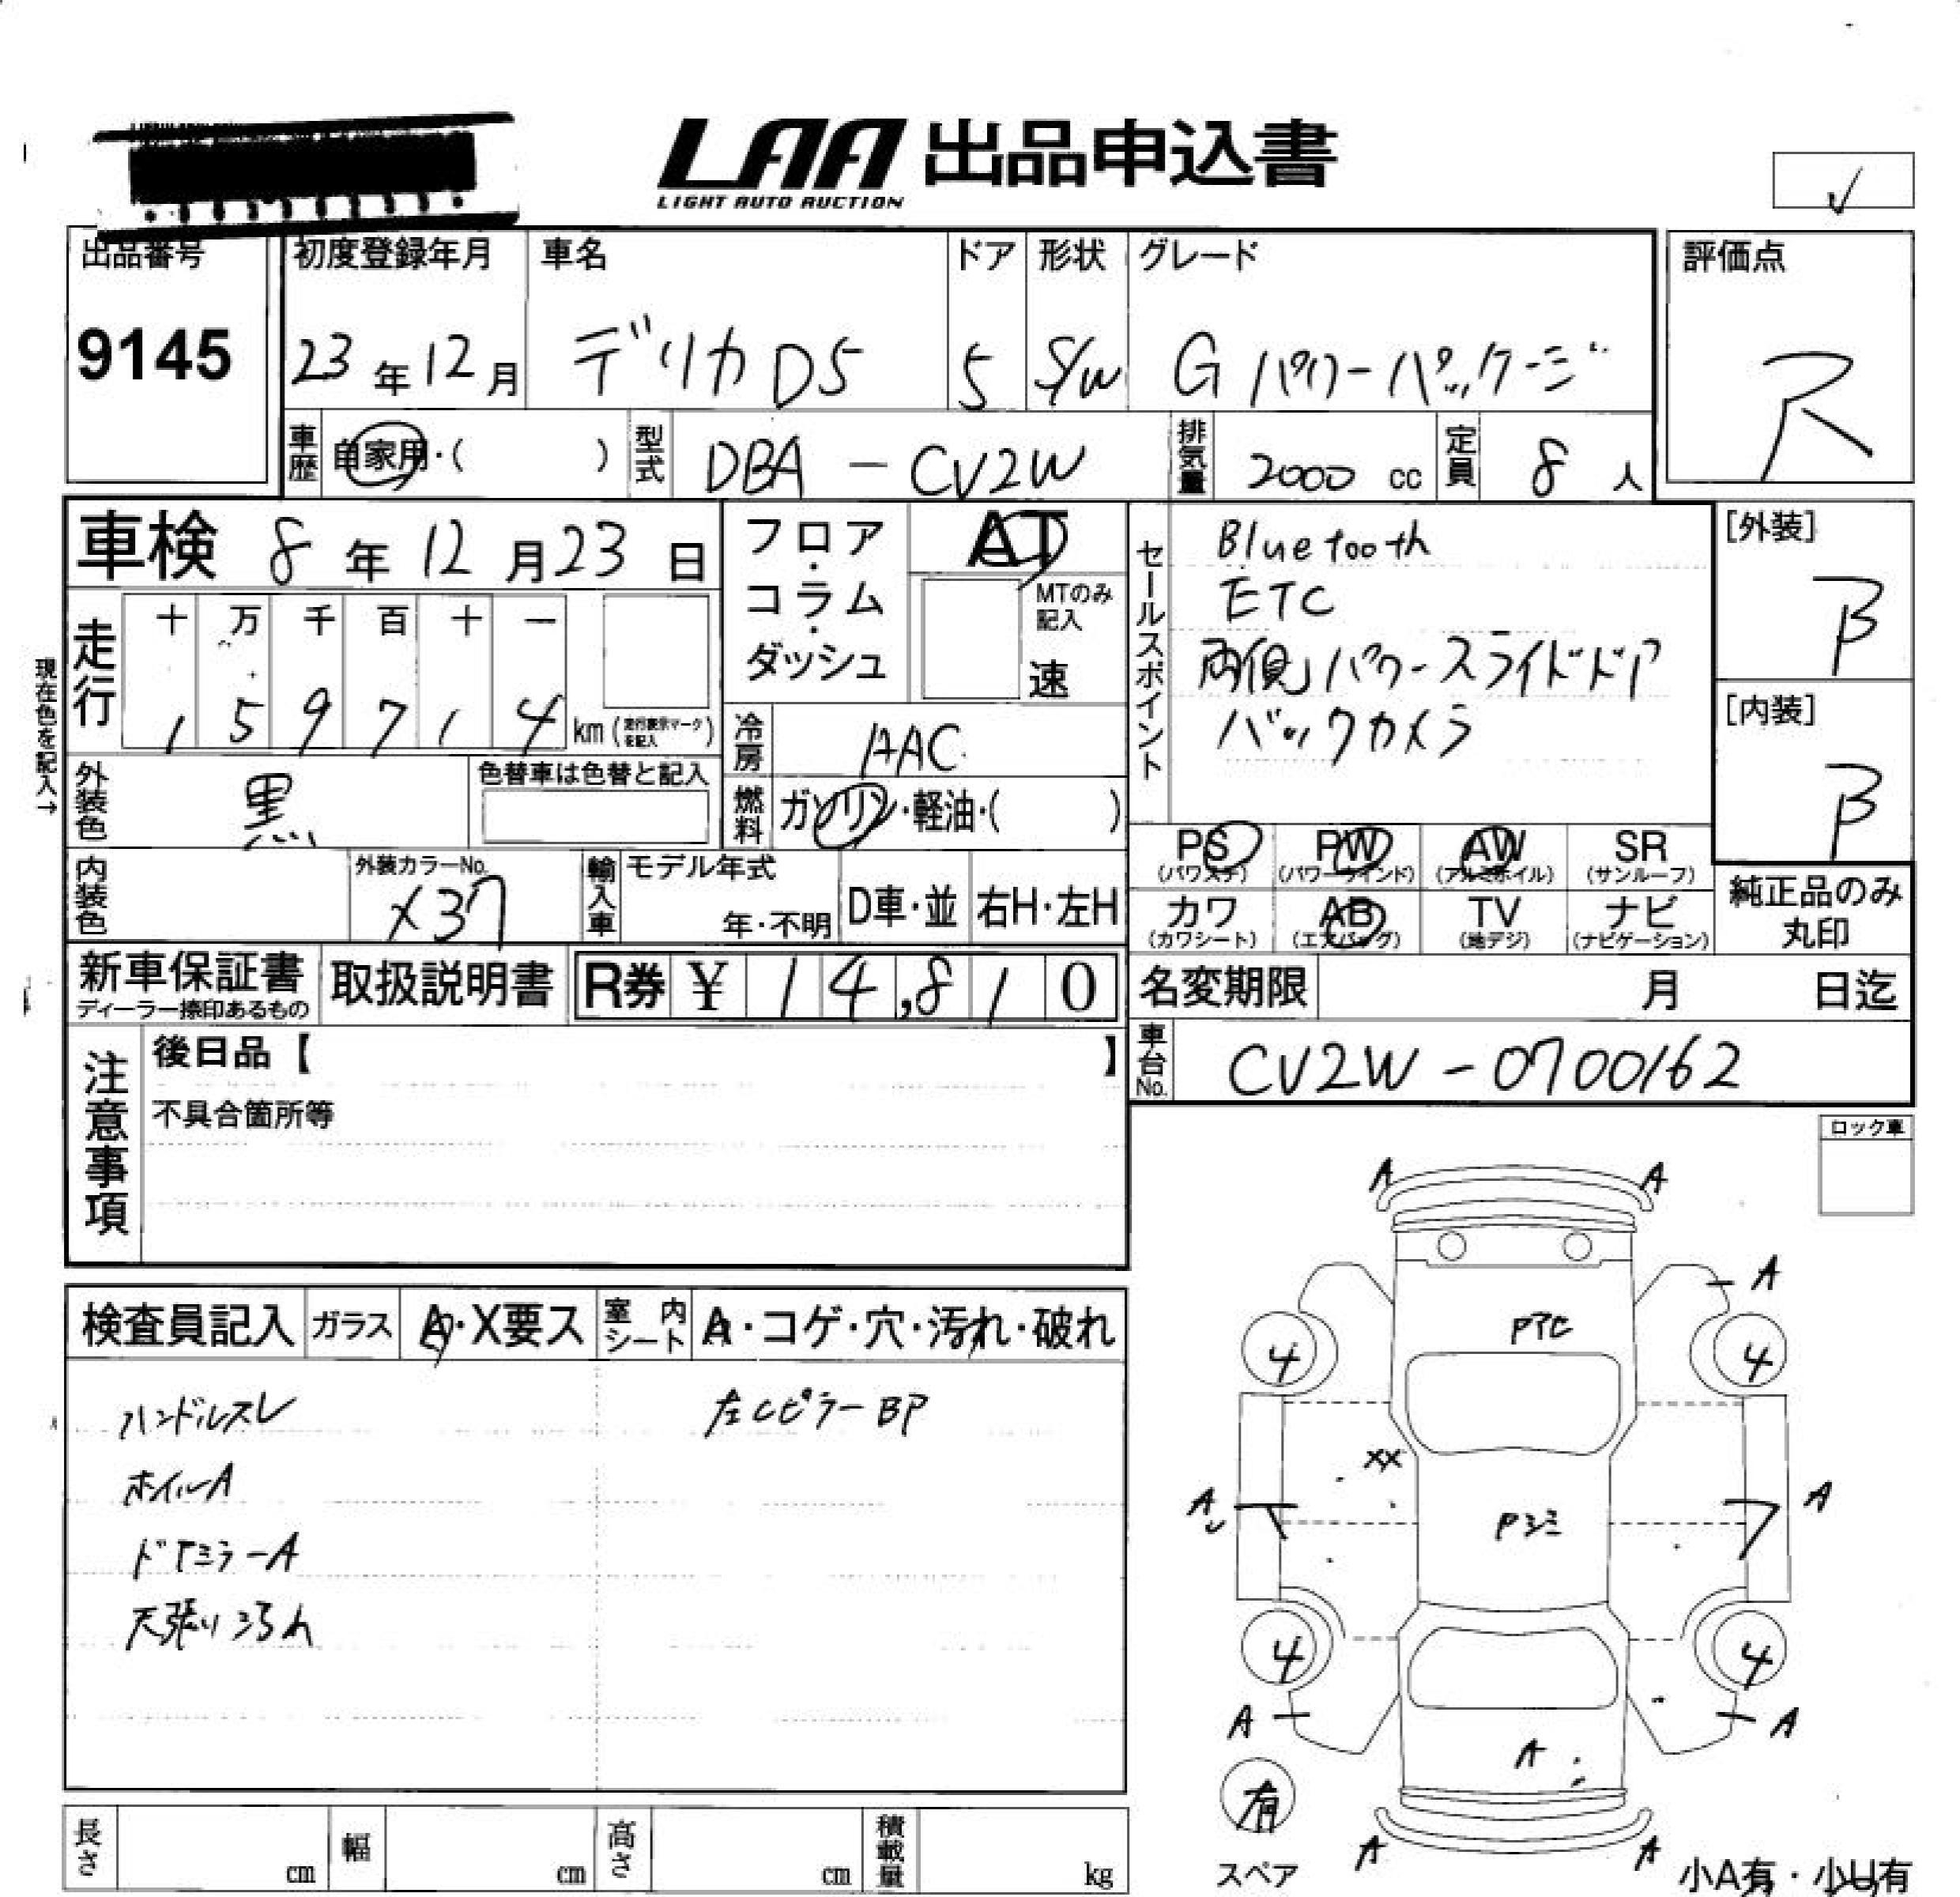 LAA 出品申込書
LIGHT AUTO AUCTION
出品番号 初度登録年月 車名 ドア 形状 グレード 評価点
9145 23年12月 デリカD5 5 S/W Gパワーパッケージ R
車歴 自家用・( ) 型式 DBA-CV2W 排気量 2000 cc 定員 8人
車検 8年12月23日
フロア・コラム・ダッシュ AT
MTのみ記入
速
セールスポイント
Bluetooth
ETC
両側パワースライドドア
バックカメラ
[外装]
B
[内装]
B
現在色を記入→
走行 十 万 千 百 十 一
1 5 9 7 1 4 km (走行表示マークを記入)
冷房 AAC
外装色 黒 色替車は色替と記入
燃料 ガソリン・軽油・( )
PS (パワステ) PW (パワーウインド) AW (アルミホイル) SR (サンルーフ)
カワ (カワシート) AB (エアバッグ) TV (地デジ) ナビ (ナビゲーション)
純正品のみ丸印
内装色 外装カラーNo. X37 輸入車 モデル年式 年・不明 D車・並 右H・左H
新車保証書 ディーラー捺印あるもの 取扱説明書 R券 ¥ 14,810
名変期限 月 日迄
車台No. CV2W-0700162
注意事項
後日品【 】
不具合箇所等
ロック車
検査員記入 ガラス A・X要ス 室内シート A・コゲ・穴・汚れ・破れ
ハンドルスレ 左Cピラー BP
ホイルA
ドアミラーA
天張りヨゴレ
A A
A
PTC
4 4
XX
A A
Pシミ
4 4
A A
A
有
スペア
A A
小A有・小U有
長さ cm 幅 cm 高さ cm 積載量 kg